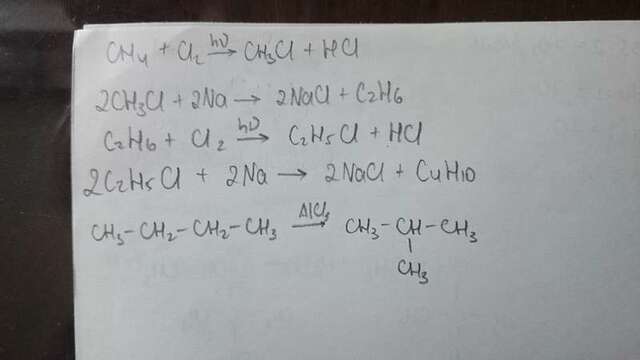 CH4 + Cl2 hν→ CH3Cl + HCl
2CH3Cl + 2Na → 2NaCl + C2H6
C2H6 + Cl2 hν→ C2H5Cl + HCl
2C2H5Cl + 2Na → 2NaCl + C4H10
CH3-CH2-CH2-CH3 AlCl3→ CH3-CH-CH3
|
CH3